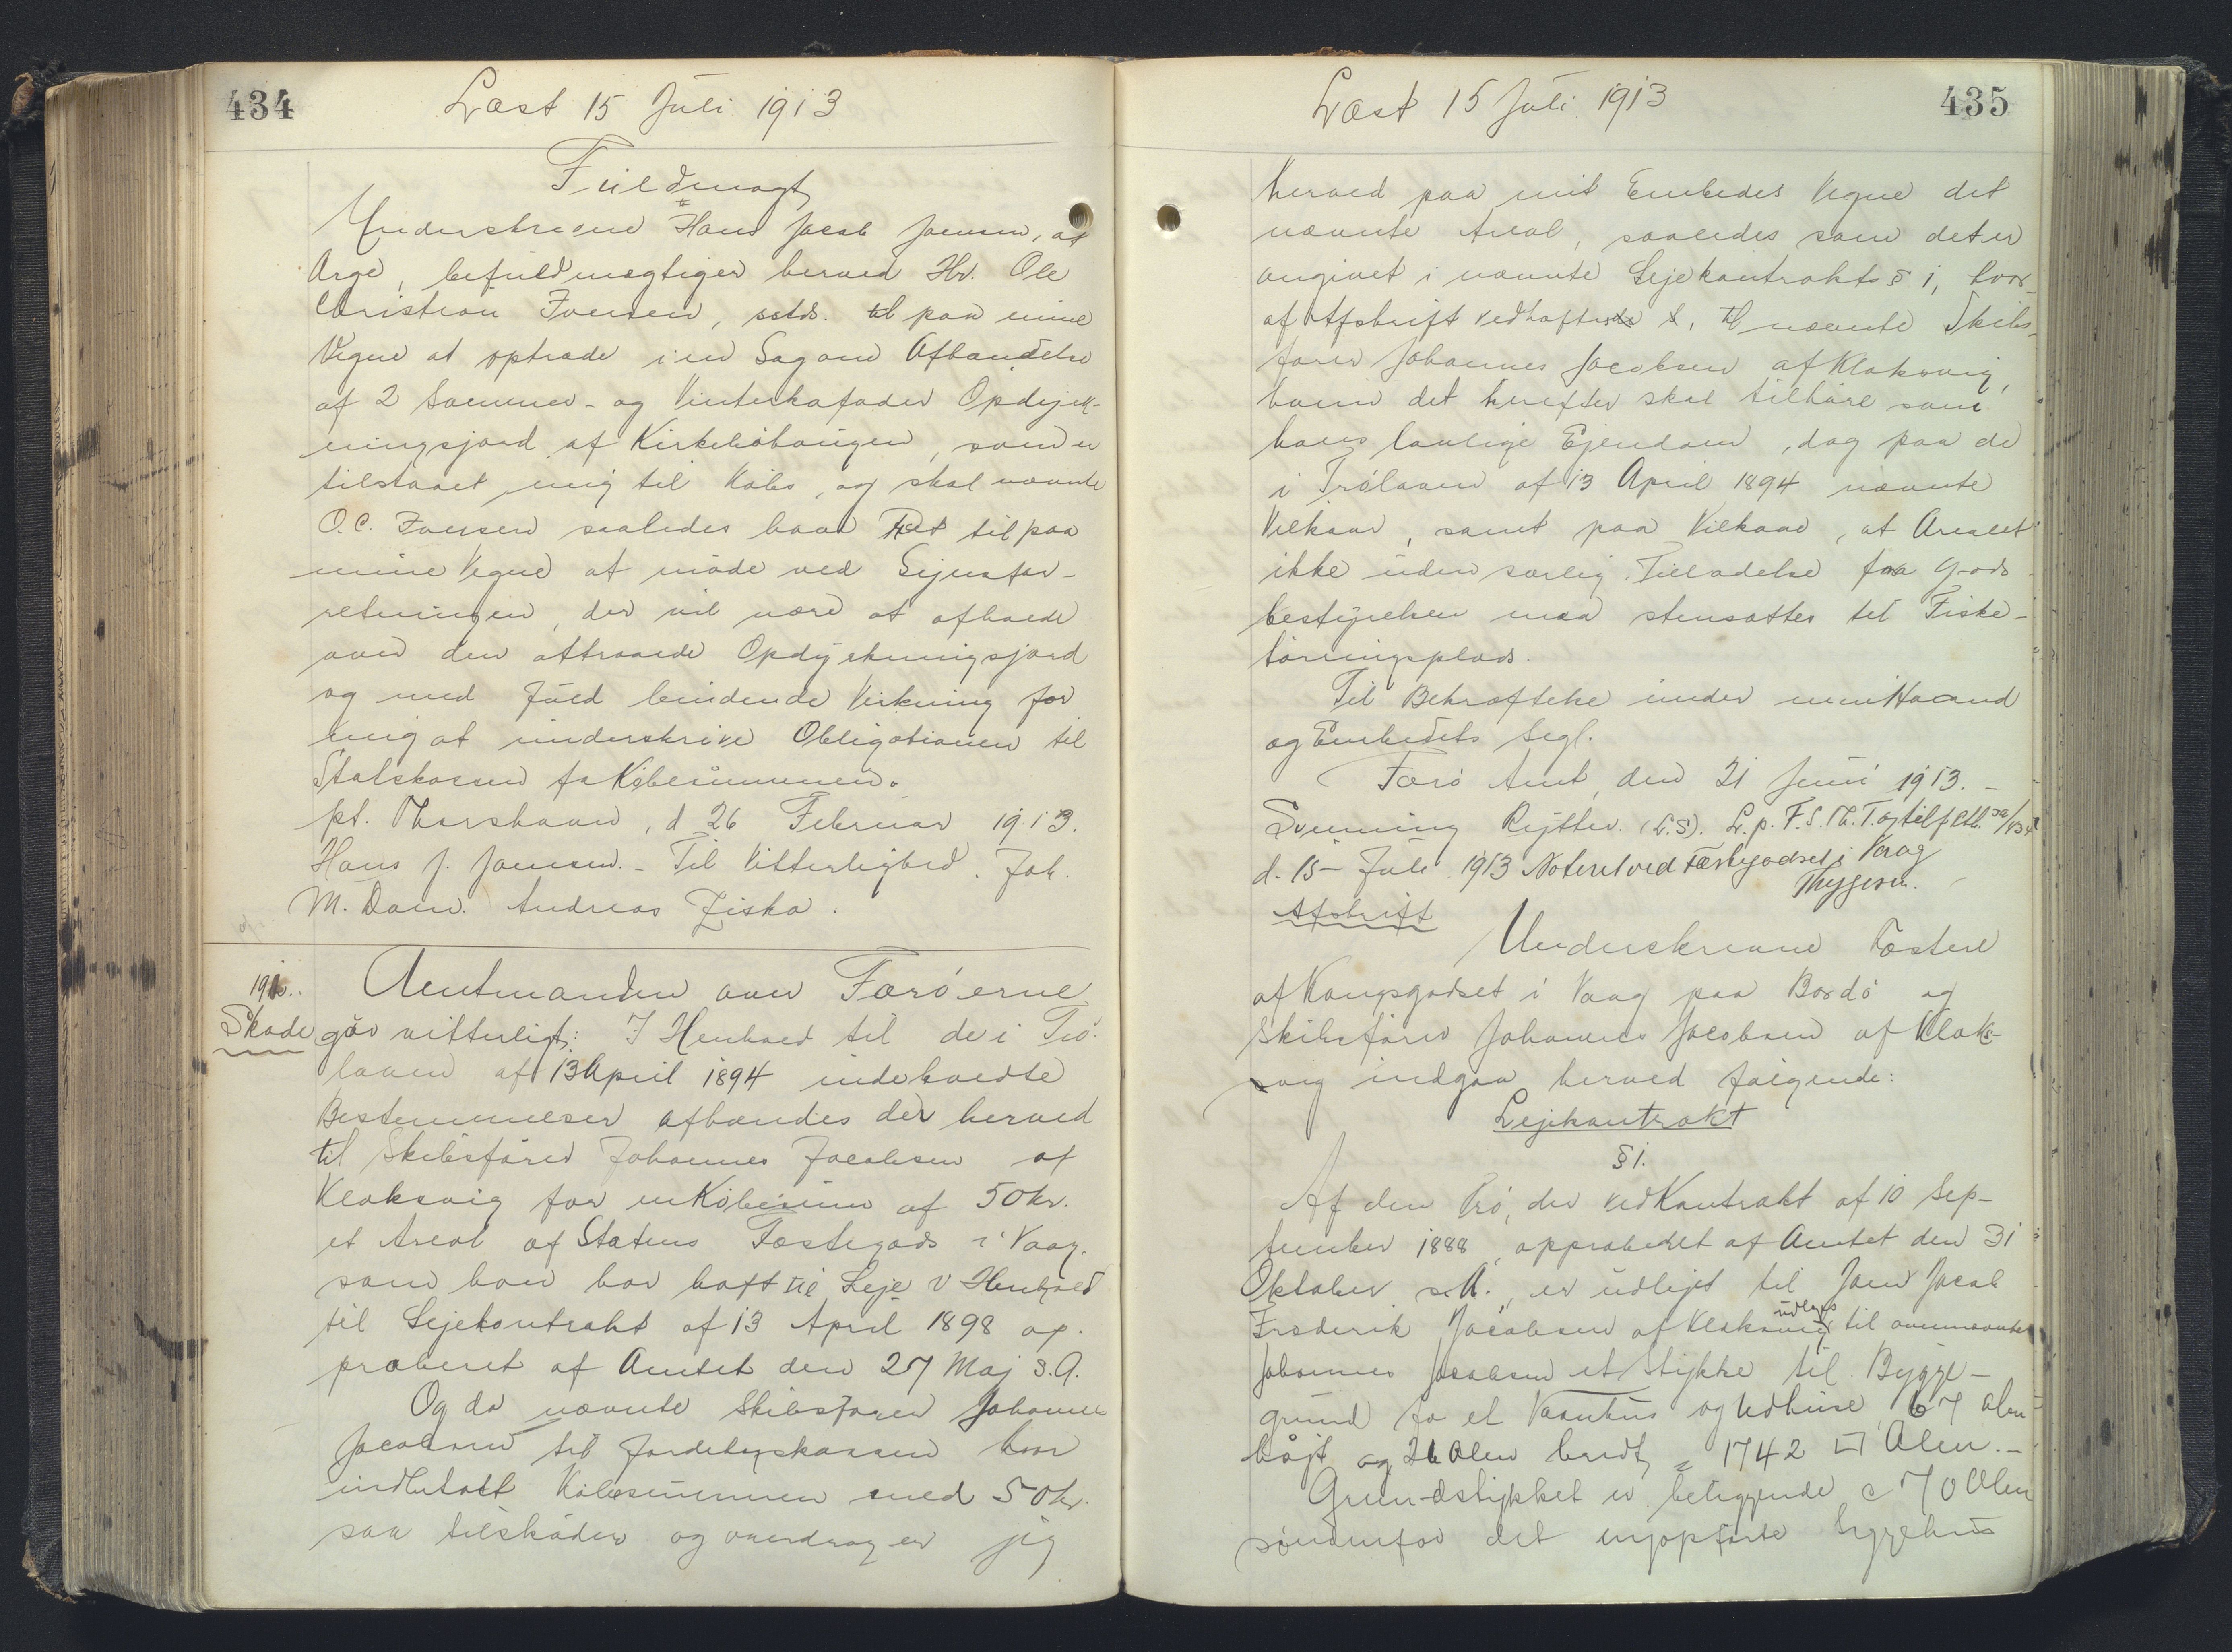 434
Læst 15 Juli 1913
Fuldmagt
Underskrevne Hans Jacob Joensen, af
Arge, befuldmægtiger herved Hr. Ole
Christian Iversen, sstds. til paa mine
Vegne at optræde i en Sag om Afhændelse
af 2 Sommer- og Vinterkøfoder Opdyrk-
ningsjord af Kirkebøhaugen, som er
tilstaaet mig til Købs, og skal nævnte
O.C. Iversen saaledes have Ret til paa
mine Vegne at møde ved Synsfor-
retningen, der vil være at afholde
over den attraaede Opdyrkningsjord
og med fuld bindende Virkning for
mig at underskrive Obligationen til
Statskassen for Købesummen.
pt. Thorshavn, d 26 Februar 1913.
Hans J. Joensen. - Til Vitterlighed. Joh.
M. Dam. Andreas Ziska.
Amtmanden over Færøerne
Skøde gør vitterligt: I Henhold til de i Trö-
loven af 13 April 1894 indeholdte
Bestemmelser afhændes der herved
til Skibsfører Johannes Jacobsen af
Klaksvig for en Købesum af 50 kr.
et Areal af Statens Fæstegods i Vaag,
som han har haft til Leje i Henhold
til Lejekontrakt af 13 April 1898 ap-
proberet af Amtet den 27 Maj s.A.
Og da nævnte Skibsfører Johannes
Jacobsen til Jordebogskassen har
indbetalt Købesummen med 50 kr.
saa tilskøder og overdrager jeg
Læst 15 Juli 1913
435
herved paa mit Embedes Vegne det
nævnte Areal, saaledes som det er
angivet i nævnte Lejekontrakts § 1, hvor-
af Afskrift vedhæftes, til nævnte Skibs-
fører Johannes Jacobsen af Klaksvig,
hvem det herefter skal tilhøre som
hans lovlige Ejendom, dog paa de
i Tröloven af 13 April 1894 nævnte
Vilkaar, samt paa Vilkaar, at Arealet
ikke uden særlig Tilladelse fra Gods-
bestyrelsen maa stensættes til Fiske-
tørringsplads.
Til Bekræftelse under min Haand
og Embedets Segl.
Færø Amt, den 21 Juni 1913. -
Svenning Rytter. (L.S). L.p. F.S.Th. T. og tilf.
d. 15 - Juli 1913 Noteret ved Fæstegodset i Vaag
Thygesen.
Afskrift
Underskrevne Fæstere
af Kongsgodset i Vaag paa Bordø og
Skibsfører Johannes Jacobsen af Klaks-
vig indgaa herved følgende:
Lejekontrakt
§ 1.
Af den Trö, der ved Kontrakt af 10 Sep-
tember 1888, approberet af Amtet den 31
Oktober s.A., er udlejet til Joen Jacob
Frederik Jacobsen af Klaksvig udlejes til ovennævnte
Johannes Jacobsen et Stykke til Bygge-
grund for et Vaanhus og Udhuse, 67 Alen
højt og 26 Alen bredt = 1742 □ Alen. -
Grundstykket er beliggende c 70 Alen
søndenfor det nyopførte Sygehus